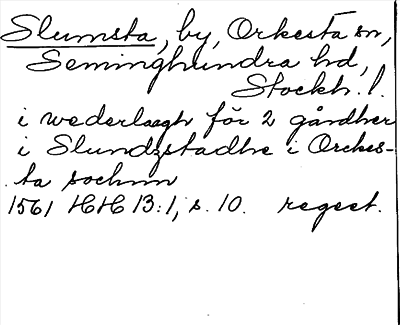 Slumsta, by, Orkesta sn,
Seminghundra hd,
Stockh. l.
i wederlaagh för 2 gårdher
i Slundzstadhe i Orckes-
ta sochnn
1561 HH 13:1, s. 10. regest.